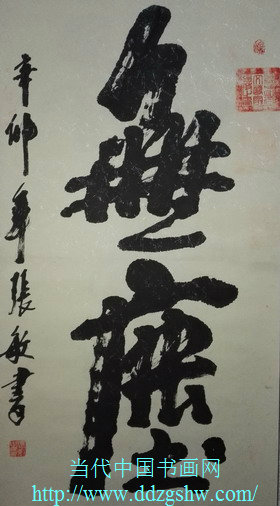 無塵
辛卯年張敏書
当代中国书画网
http://www.ddzgshw.com/